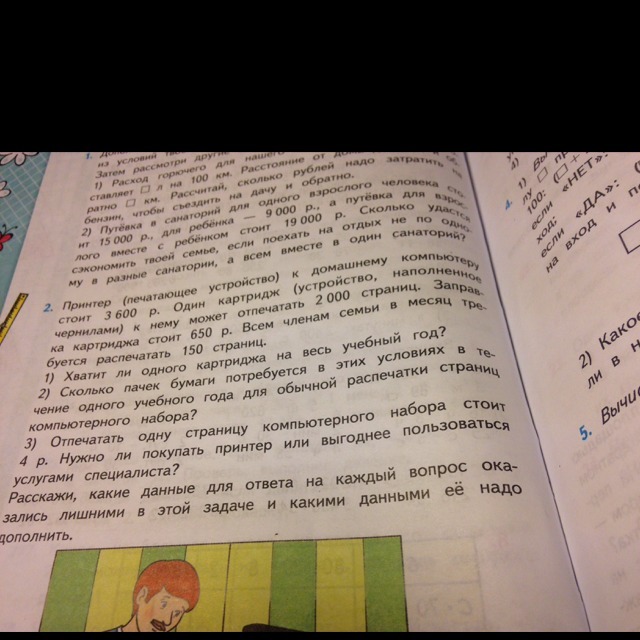 1. 
из условий
Затем рассмотри другие
1) Расход горючего для нашего
ставляет □ л на 100 км. Расстояние от
ратно □ км. Рассчитай, сколько рублей надо затратить на
бензин, чтобы съездить на дачу и обратно.
2) Путёвка в санаторий для одного взрослого человека сто-
ит 15 000 р., для ребёнка — 9 000 р., а путёвка для взрос-
лого вместе с ребёнком стоит 19 000 р. Сколько удастся
сэкономить твоей семье, если поехать на отдых не по одно-
му в разные санатории, а всем вместе в один санаторий?
2. Принтер (печатающее устройство) к домашнему компьютеру
стоит 3 600 р. Один картридж (устройство, наполненное
чернилами) к нему может отпечатать 2 000 страниц. Заправ-
ка картриджа стоит 650 р. Всем членам семьи в месяц тре-
буется распечатать 150 страниц.
1) Хватит ли одного картриджа на весь учебный год?
2) Сколько пачек бумаги потребуется в этих условиях в те-
чение одного учебного года для обычной распечатки страниц
компьютерного набора?
3) Отпечатать одну страницу компьютерного набора стоит
4 р. Нужно ли покупать принтер или выгоднее пользоваться
услугами специалиста?
Расскажи, какие данные для ответа на каждый вопрос ока-
зались лишними в этой задаче и какими данными её надо
дополнить.
4)
4. 1)
лу □
100: (□ +
если «НЕТ»:
ход;
если «ДА»: (
на вход и п
2) Какое
ли в н
5. Вычис